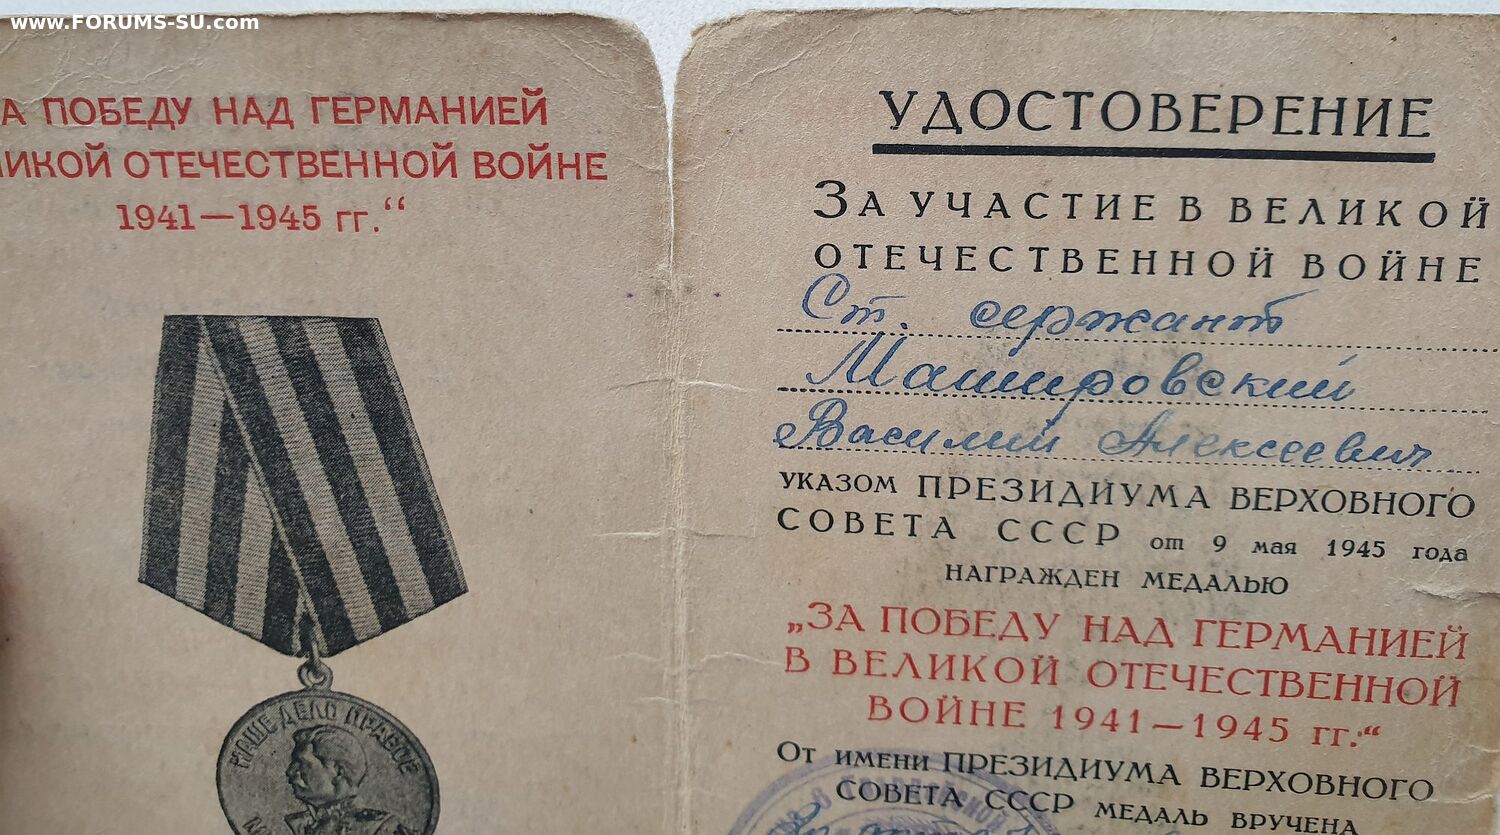 www.FORUMS-SU.com
А ПОБЕДУ НАД ГЕРМАНИЕЙ
ЛИКОЙ ОТЕЧЕСТВЕННОЙ ВОЙНЕ
1941—1945 гг.“
НАШЕ ДЕЛО ПРАВОЕ
УДОСТОВЕРЕНИЕ
ЗА УЧАСТИЕ В ВЕЛИКОЙ
ОТЕЧЕСТВЕННОЙ ВОЙНЕ
Ст. сержант
Машировский
Василий Алексеевич
УКАЗОМ ПРЕЗИДИУМА ВЕРХОВНОГО
СОВЕТА СССР от 9 мая 1945 года
НАГРАЖДЕН МЕДАЛЬЮ
„ЗА ПОБЕДУ НАД ГЕРМАНИЕЙ
В ВЕЛИКОЙ ОТЕЧЕСТВЕННОЙ
ВОЙНЕ 1941—1945 гг.“
ОТ ИМЕНИ ПРЕЗИДИУМА ВЕРХОВНОГО
СОВЕТА СССР МЕДАЛЬ ВРУЧЕНА